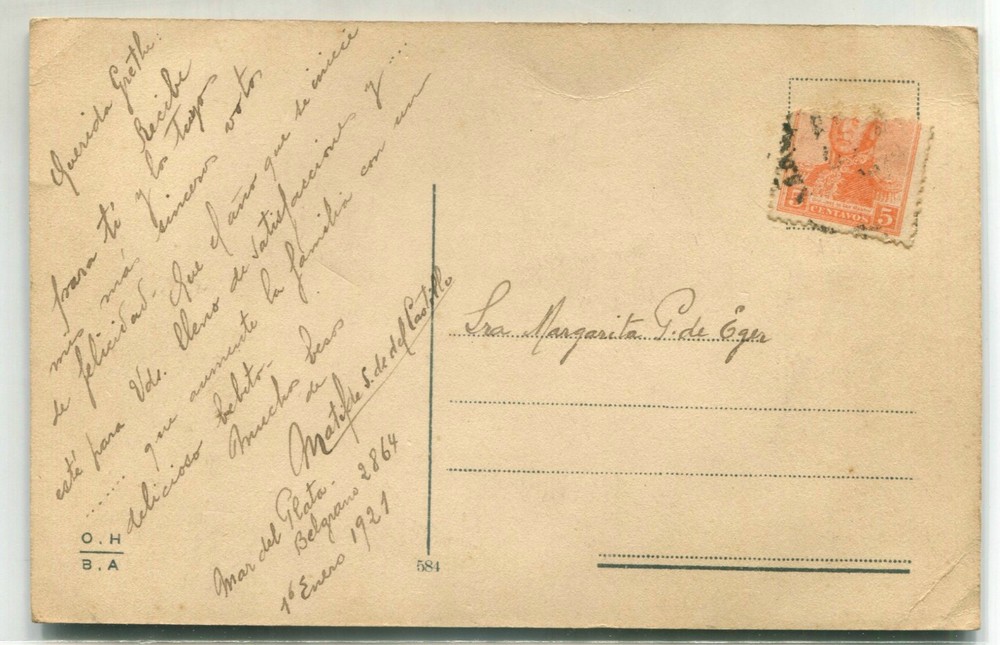 Querida Grethe:
Recibe
para tí y los tuyos
mis más sinceros votos
de felicidad. Que el año que se inicie
esté para Vds. lleno de satisfacciones y ....
....... que aumente la familia con un
delicioso bebito.
Muchos besos
de
Matilde S. de del Castillo
Mar del Plata.
Belgrano 2864
1º Enero 1921
O.H
B.A
584
Sra Margarita P. de Eger
5 CENTAVOS 5